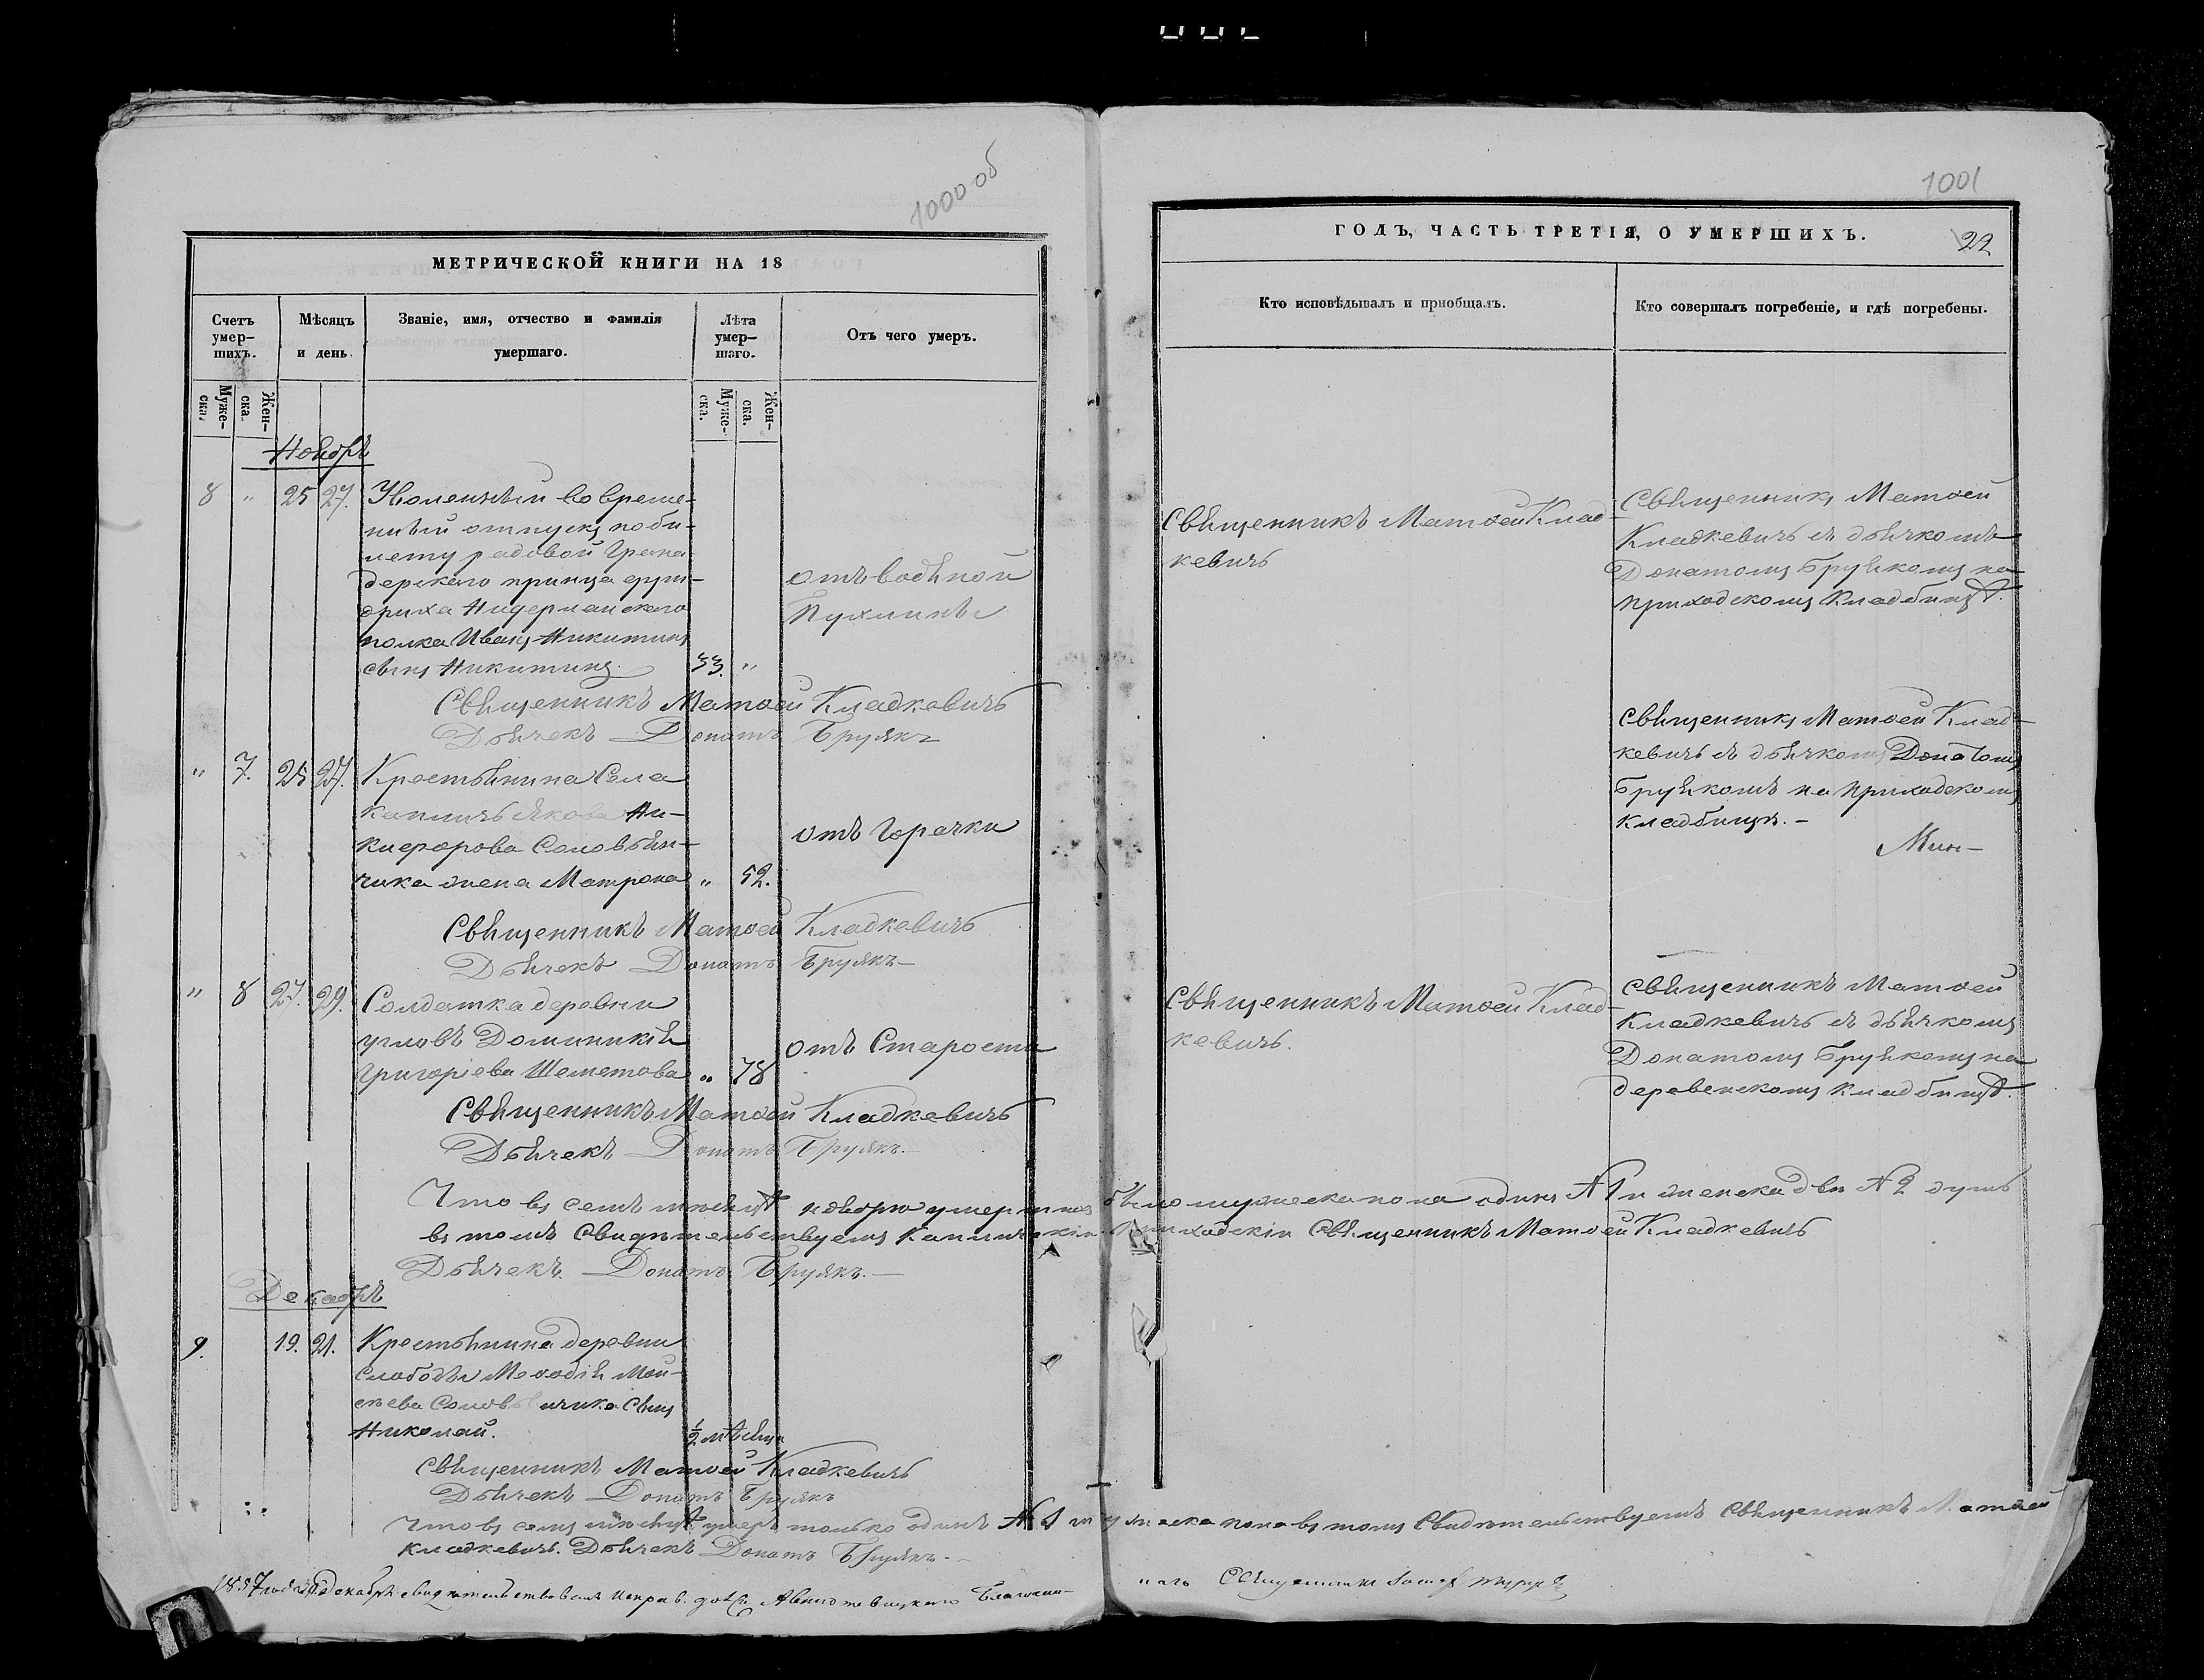 1000 об
МЕТРИЧЕСКОЙ КНИГИ НА 18
Счетъ умер-шихъ.
Мѣсяцъ и день.
Званіе, имя, отчество и фамилія умершаго.
Лѣта умер-шаго.
Отъ чего умеръ.
Муже-ска.
Жен-ска.
Муже-ска.
Жен-ска.
Ноябрь
8 " 25 27. Уволенный во време-
нный отпускъ по би-
лету рядовой Грена-
дерскаго принца фри-
дриха Нидерланскаго
полка Иванъ Никитинъ
сынъ Никитинъ. 33. "
отъ водяной
пухлины
Священникъ Матөей Кладкевичъ
Дьячекъ Донатъ Бруякъ
" 7. 25 27. Крестьянина Села
Капличъ Якова Ни-
кифорова Соловьян-
чика жена Матрона " 52.
отъ Горячки
Священникъ Матөей Кладкевичъ
Дьячекъ Донатъ Бруякъ
" 8 27. 29. Солдатка деревни
угловъ Доминикія
Григорьева Шеметова " 78
отъ Старости
Священникъ Матөей Кладкевичъ
Дьячекъ Донатъ Бруякъ.
Что въ семъ мѣсяцѣ ноябрю умершихъ было мужеска пола одинъ № 1 и женска две № 2 душъ
въ томъ Свидѣтельствуемъ Приходскій Священникъ Матөей Кладкевичъ
Дьячекъ Донатъ Бруякъ.
Декабрь
9. 19. 21. Крестьянина деревни
Слободы Меөодія Мои-
сѣева Соловьянчика сынъ
Николай. 1/2 мѣсяца
Священникъ Матөей Кладкевичъ
Дьячекъ Донатъ Бруякъ
Что въ семъ мѣсяцѣ умеръ только одинъ № 1 мужеска пола въ томъ Свидѣтельствуемъ Священникъ Матөей
Кладкевичъ. Дьячекъ Донатъ Бруякъ.
1857 года декабря свидѣтельствовалъ Исправ. долж. Благочин-
наго Священникъ
1001
ГОДЪ, ЧАСТЬ ТРЕТІЯ, О УМЕРШИХЪ.
22
Кто исповѣдывалъ и пріобщалъ.
Кто совершалъ погребеніе, и гдѣ погребены.
Священникъ Матөей Клад-
кевичъ
Священникъ Матөей
Кладкевичъ съ дьячкомъ
Донатомъ Бруякомъ на
приходскомъ Кладбищѣ.
Священникъ Матөей Клад-
кевичъ съ дьячкомъ Донатомъ
Бруякомъ на приходскомъ
кладбищѣ. -
Мин-
Священникъ Матөей Клад-
кевичъ.
Священникъ Матөей
Кладкевичъ съ дьячкомъ
Донатомъ Бруякомъ на
деревенскомъ Кладбищѣ.